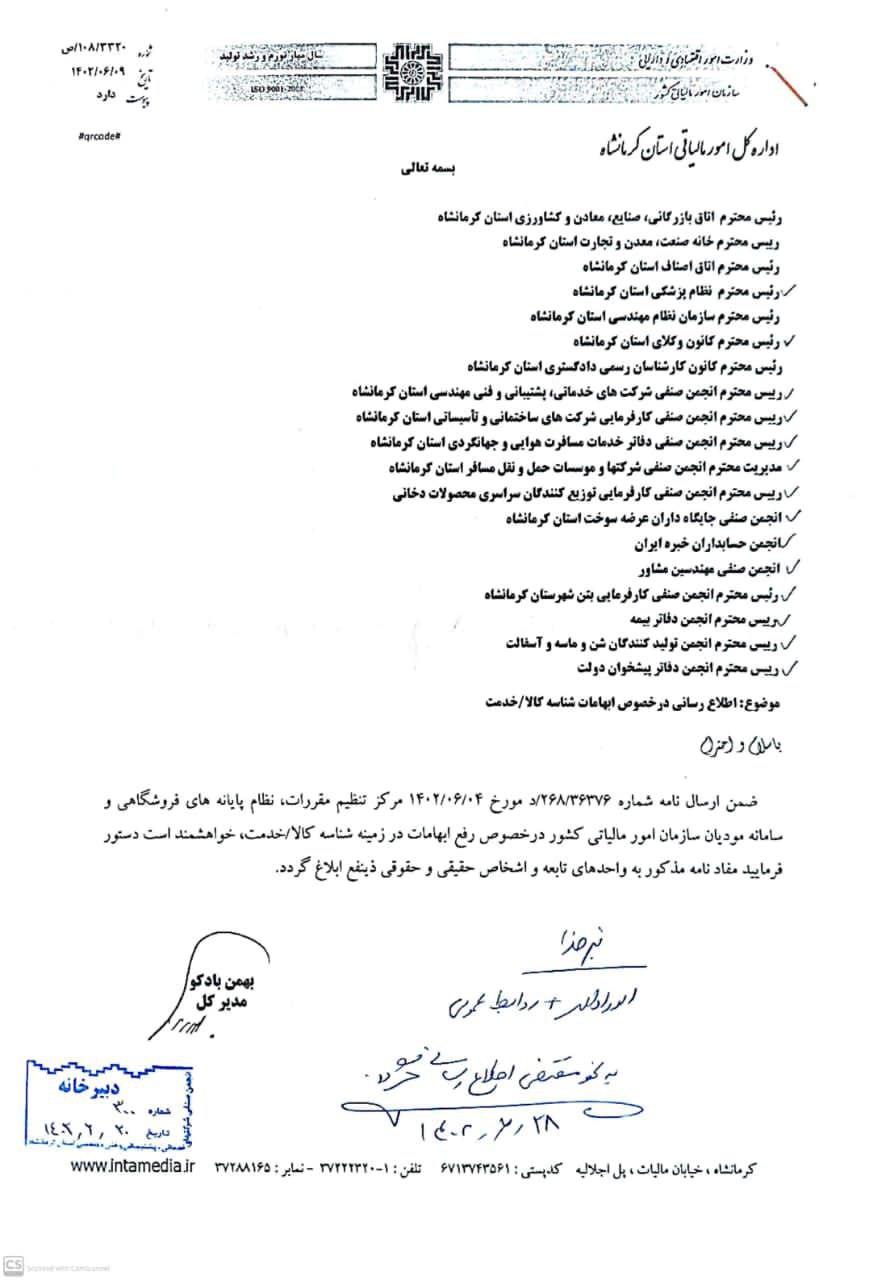 شماره ۱۰۸/۳۳۲۰/ص
تاریخ ۱۴۰۲/۰۶/۰۹
پیوست دارد
#qrcode#
سال مهار تورم و رشد تولید
ISO 9001-2008
وزارت امور اقتصادی و دارایی
سازمان امور مالیاتی کشور
اداره کل امور مالیاتی استان کرمانشاه
بسمه تعالی
رئیس محترم اتاق بازرگانی، صنایع، معادن و کشاورزی استان کرمانشاه
رییس محترم خانه صنعت، معدن و تجارت استان کرمانشاه
رئیس محترم اتاق اصناف استان کرمانشاه
رئیس محترم نظام پزشکی استان کرمانشاه
رئیس محترم سازمان نظام مهندسی استان کرمانشاه
رئیس محترم کانون وکلای استان کرمانشاه
رئیس محترم کانون کارشناسان رسمی دادگستری استان کرمانشاه
رییس محترم انجمن صنفی شرکت های خدماتی، پشتیبانی و فنی مهندسی استان کرمانشاه
رییس محترم انجمن صنفی کارفرمایی شرکت های ساختمانی و تأسیساتی استان کرمانشاه
رییس محترم انجمن صنفی دفاتر خدمات مسافرت هوایی و جهانگردی استان کرمانشاه
مدیریت محترم انجمن صنفی شرکتها و موسسات حمل و نقل مسافر استان کرمانشاه
رییس محترم انجمن صنفی کارفرمایی توزیع کنندگان سراسری محصولات دخانی
انجمن صنفی جایگاه داران عرضه سوخت استان کرمانشاه
انجمن حسابداران خبره ایران
انجمن صنفی مهندسین مشاور
رئیس محترم انجمن صنفی کارفرمایی بتن شهرستان کرمانشاه
رییس محترم انجمن دفاتر بیمه
رییس محترم انجمن تولید کنندگان شن و ماسه و آسفالت
رییس محترم انجمن دفاتر پیشخوان دولت
موضوع: اطلاع رسانی درخصوص ابهامات شناسه کالا/خدمت
باسلام و احترام
ضمن ارسال نامه شماره ۲۶۸/۳۶۳۷۶/د مورخ ۱۴۰۲/۰۶/۰۴ مرکز تنظیم مقررات، نظام پایانه های فروشگاهی و
سامانه مودیان سازمان امور مالیاتی کشور درخصوص رفع ابهامات در زمینه شناسه کالا/خدمت، خواهشمند است دستور
فرمایید مفاد نامه مذکور به واحدهای تابعه و اشخاص حقیقی و حقوقی ذینفع ابلاغ گردد.
بهمن بادکو
مدیر کل
+ روابط عمومی
به نحو مقتضی اطلاع رسانی
دبیرخانه
شماره ۳۰۰
تاریخ ۱۴۰۲٫۶٫۲۰
انجمن صنفی شرکتهای
خدماتی، پشتیبانی و فنی مهندسی استان کرمانشاه
کرمانشاه ، خیابان مالیات ، پل اجلالیه کدپستی : ۶۷۱۳۷۴۳۵۶۱ تلفن : ۱-۳۷۲۲۲۳۲۰ - نمابر : ۳۷۲۸۸۱۶۵ www.intamedia.ir
CS Scanned with CamScanner